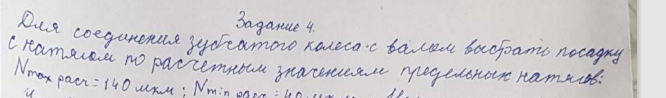 Задание 4.
Для соединения зубчатого колеса с валом выбрать посадку
с натягом по расчетным значениям предельных натягов:
Nmax расч = 140 мкм ; Nmin расч = 40